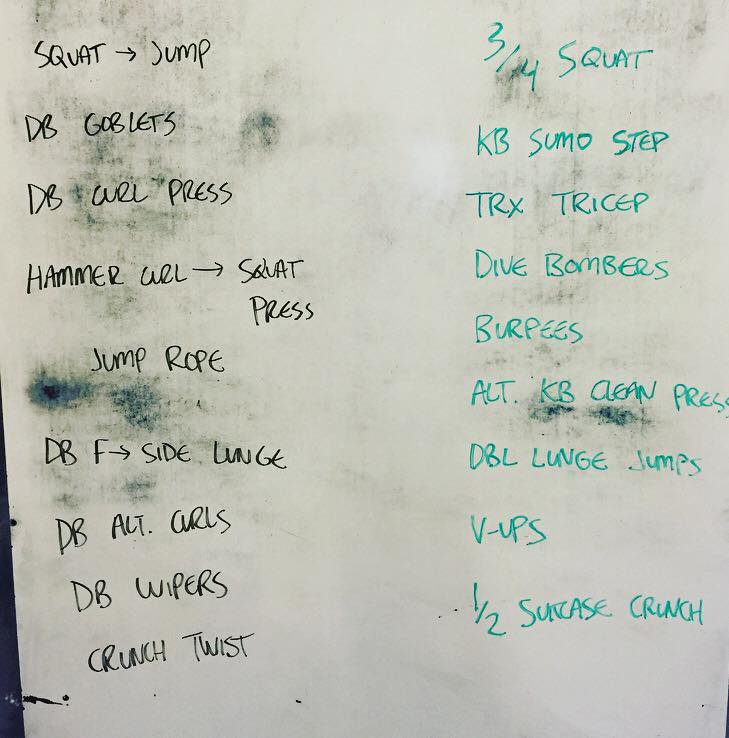 SQUAT → JUMP
DB GOBLETS
DB CURL PRESS
HAMMER CURL → SQUAT
PRESS
JUMP ROPE
DB F → SIDE LUNGE
DB ALT. CURLS
DB WIPERS
CRUNCH TWIST
3/4 SQUAT
KB SUMO STEP
TRX TRICEP
DIVE BOMBERS
BURPEES
ALT. KB CLEAN PRESS
DBL LUNGE JUMPS
V-UPS
1/2 SUITCASE CRUNCH